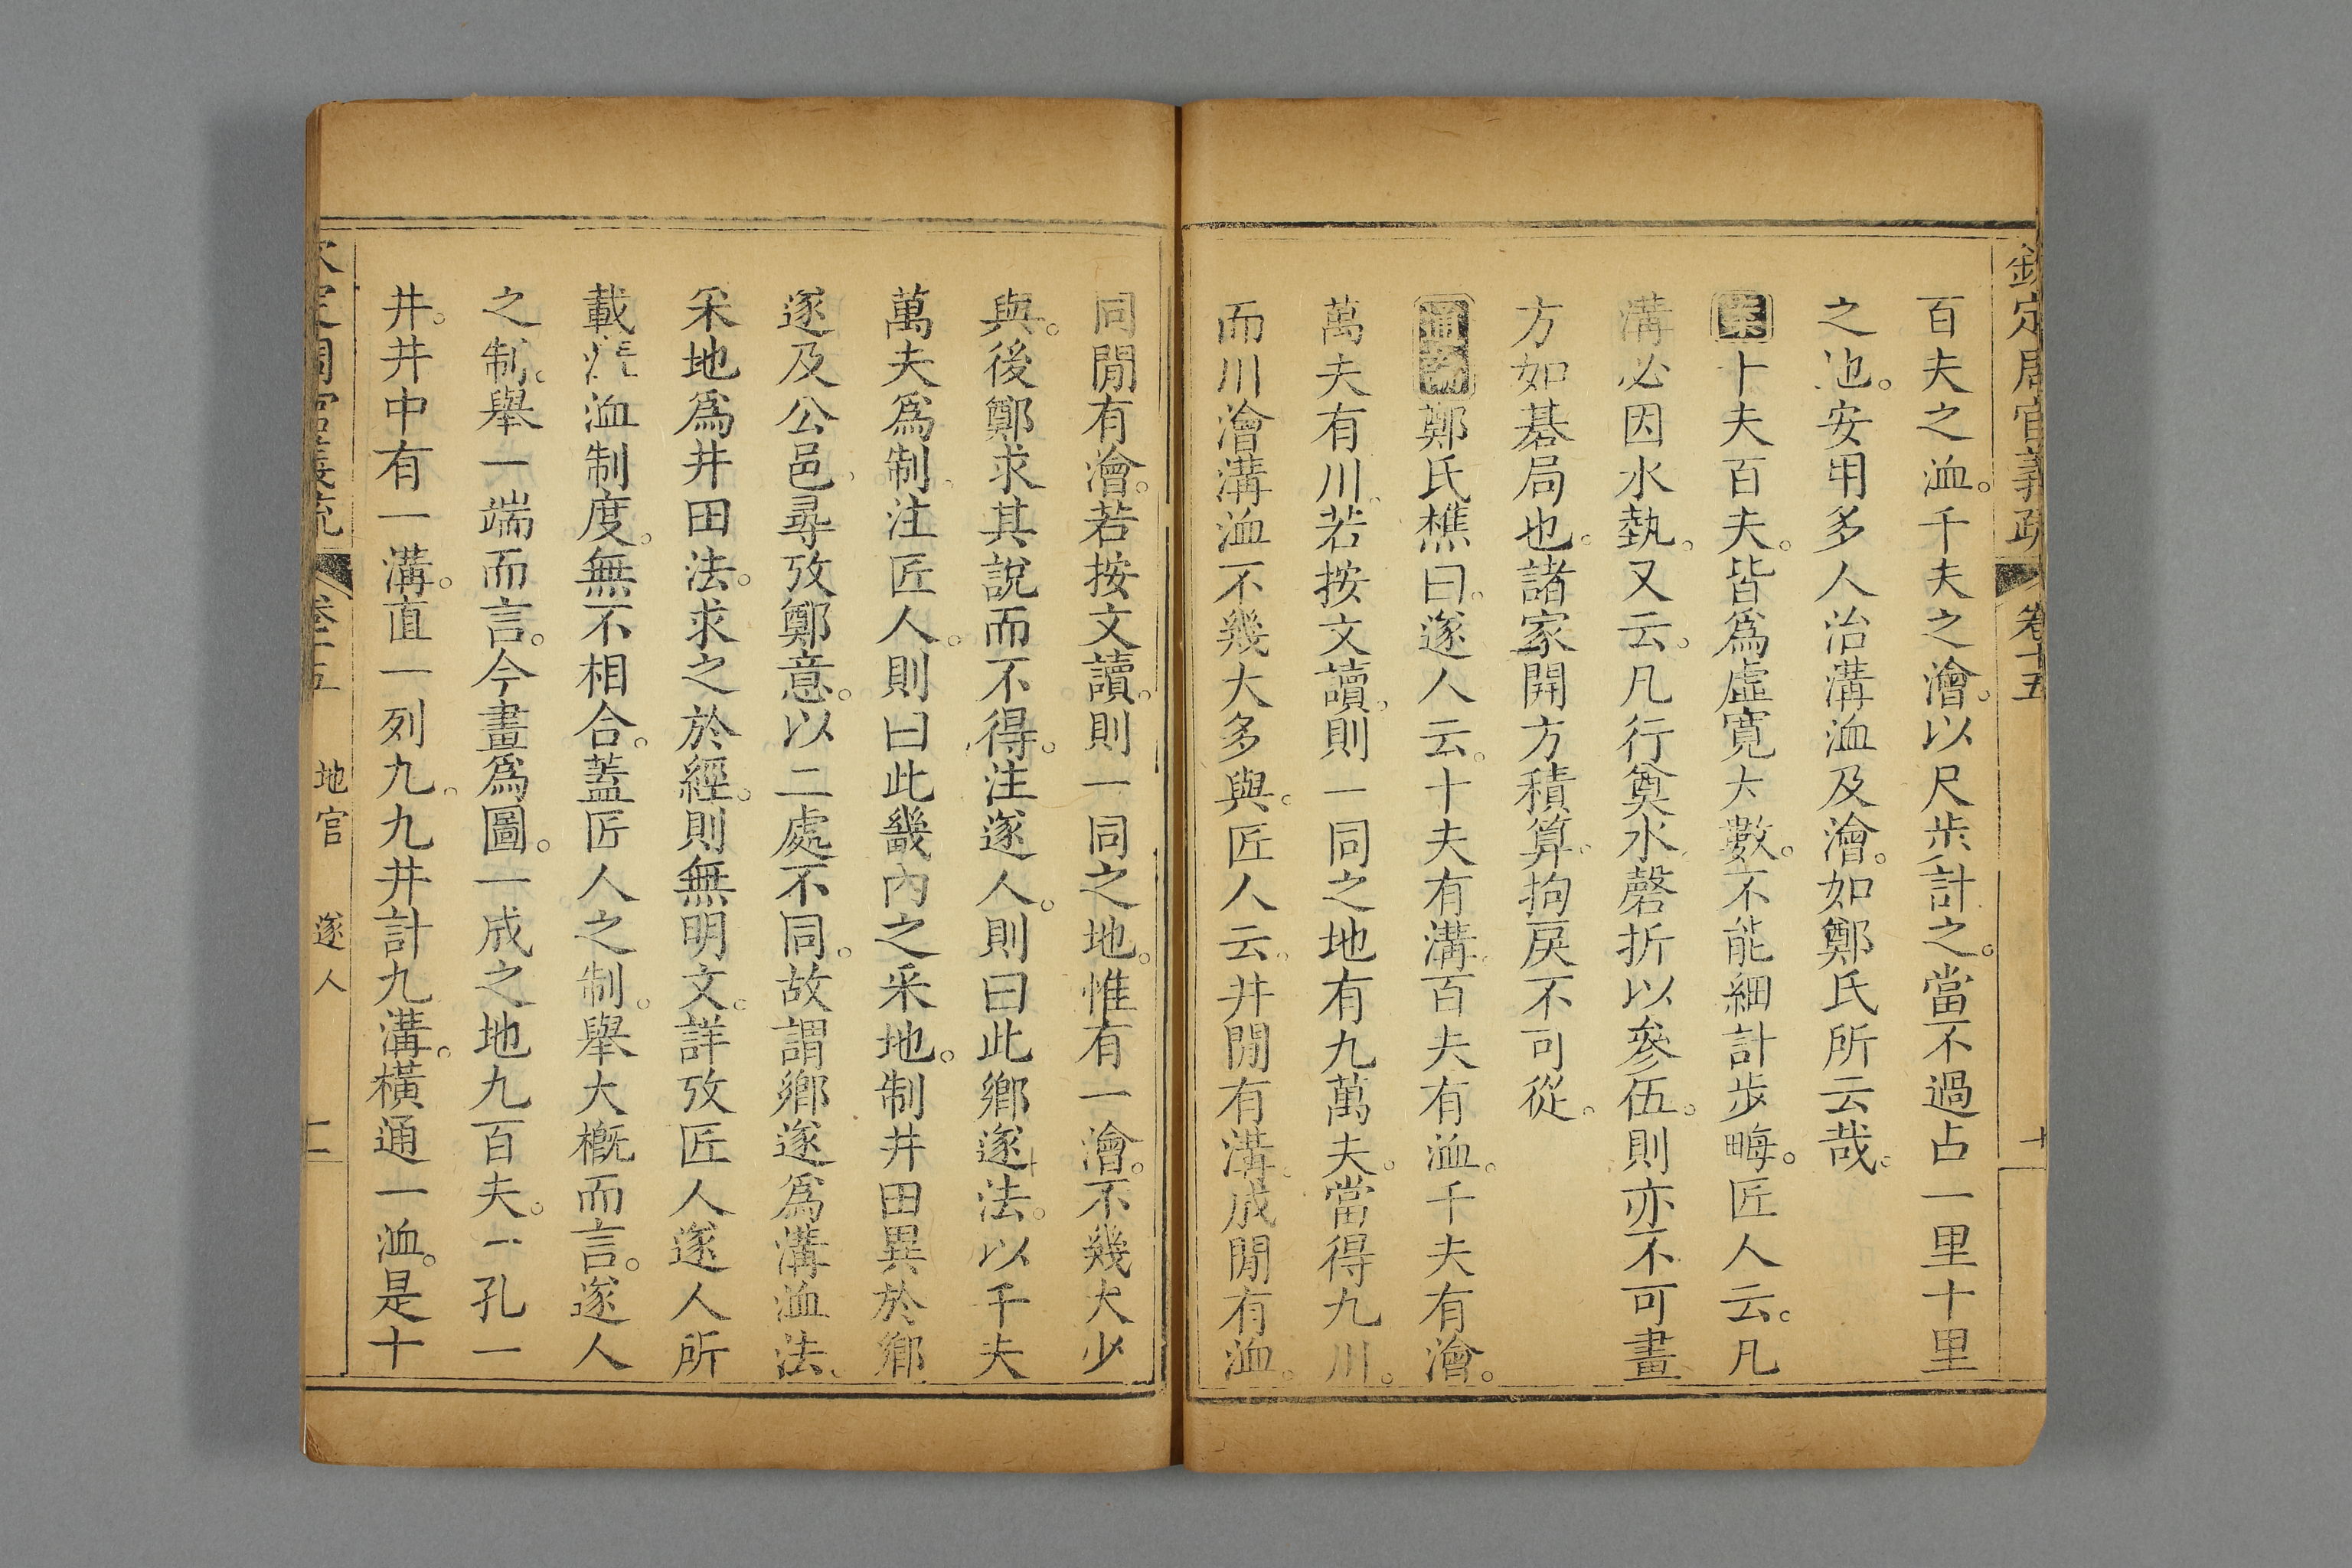 欽定周官義疏 卷十五 十
百夫之洫。千夫之澮。以尺步計之。當不過占一里十里
之地。安用多人治溝洫及澮。如鄭氏所云哉。
案十夫百夫。皆爲虛寬大數。不能細計步畮。匠人云。凡
溝必因水埶。又云。凡行奠水。磬折以參伍。則亦不可畫
方如碁局也。諸家開方積算。拘戾不可從。
通論鄭氏樵曰。遂人云。十夫有溝。百夫有洫。千夫有澮。
萬夫有川。若按文讀。則一同之地有九萬夫。當得九川。
而川澮溝洫不幾大多與。匠人云。井閒有溝。成閒有洫。
同閒有澮。若按文讀。則一同之地。惟有一澮。不幾大少
與。後鄭求其說而不得。注遂人。則曰此鄉遂法。以千夫
萬夫爲制。注匠人。則曰此畿內之采地。制井田異於鄉
遂及公邑。尋攷鄭意。以二處不同。故謂鄉遂爲溝洫法。
采地爲井田法。求之於經。則無明文。詳攷匠人遂人所
載溝洫制度。無不相合。蓋匠人之制。舉大槪而言。遂人
之制。舉一端而言。今畫爲圖。一成之地九百夫。一孔一
井。井中有一溝。直一列九。九井計九溝。橫通一洫。是十
欽定周官義疏 卷十五 地官 遂人 二